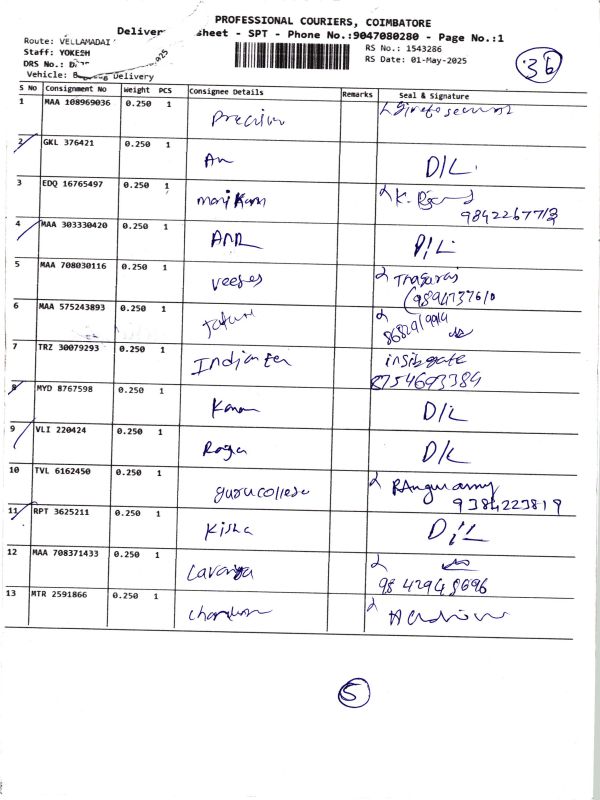 PROFESSIONAL COURIERS, COIMBATORE
sheet - SPT - Phone No.:9047080280 - Page No.:1
Route: VELLAMADAI
RS No.: 1543286
Staff: YOKESH
RS Date: 01-May-2025
DRS No.:
Vehicle: Delivery
36
S No Consignment No Weight PCS Consignee Details Remarks Seal & Signature
1 MAA 108969036 0.250 1
2 GKL 376421 0.250 1 D/L
3 EDQ 16765497 0.250 1 manikam 9842267713
4 MAA 303330420 0.250 1 D/L
5 MAA 708030116 0.250 1 Thagaraj
9894737610
6 MAA 575243893 0.250 1
7 TRZ 30079293 0.250 1
8754693384
8 MYD 8767598 0.250 1 D/L
9 VLI 220424 0.250 1 Raga D/L
10 TVL 6162450 0.250 1 guru college
9384223819
11 RPT 3625211 0.250 1 D/L
12 MAA 708371433 0.250 1 Lavanya
13 MTR 2591866 0.250 1
5